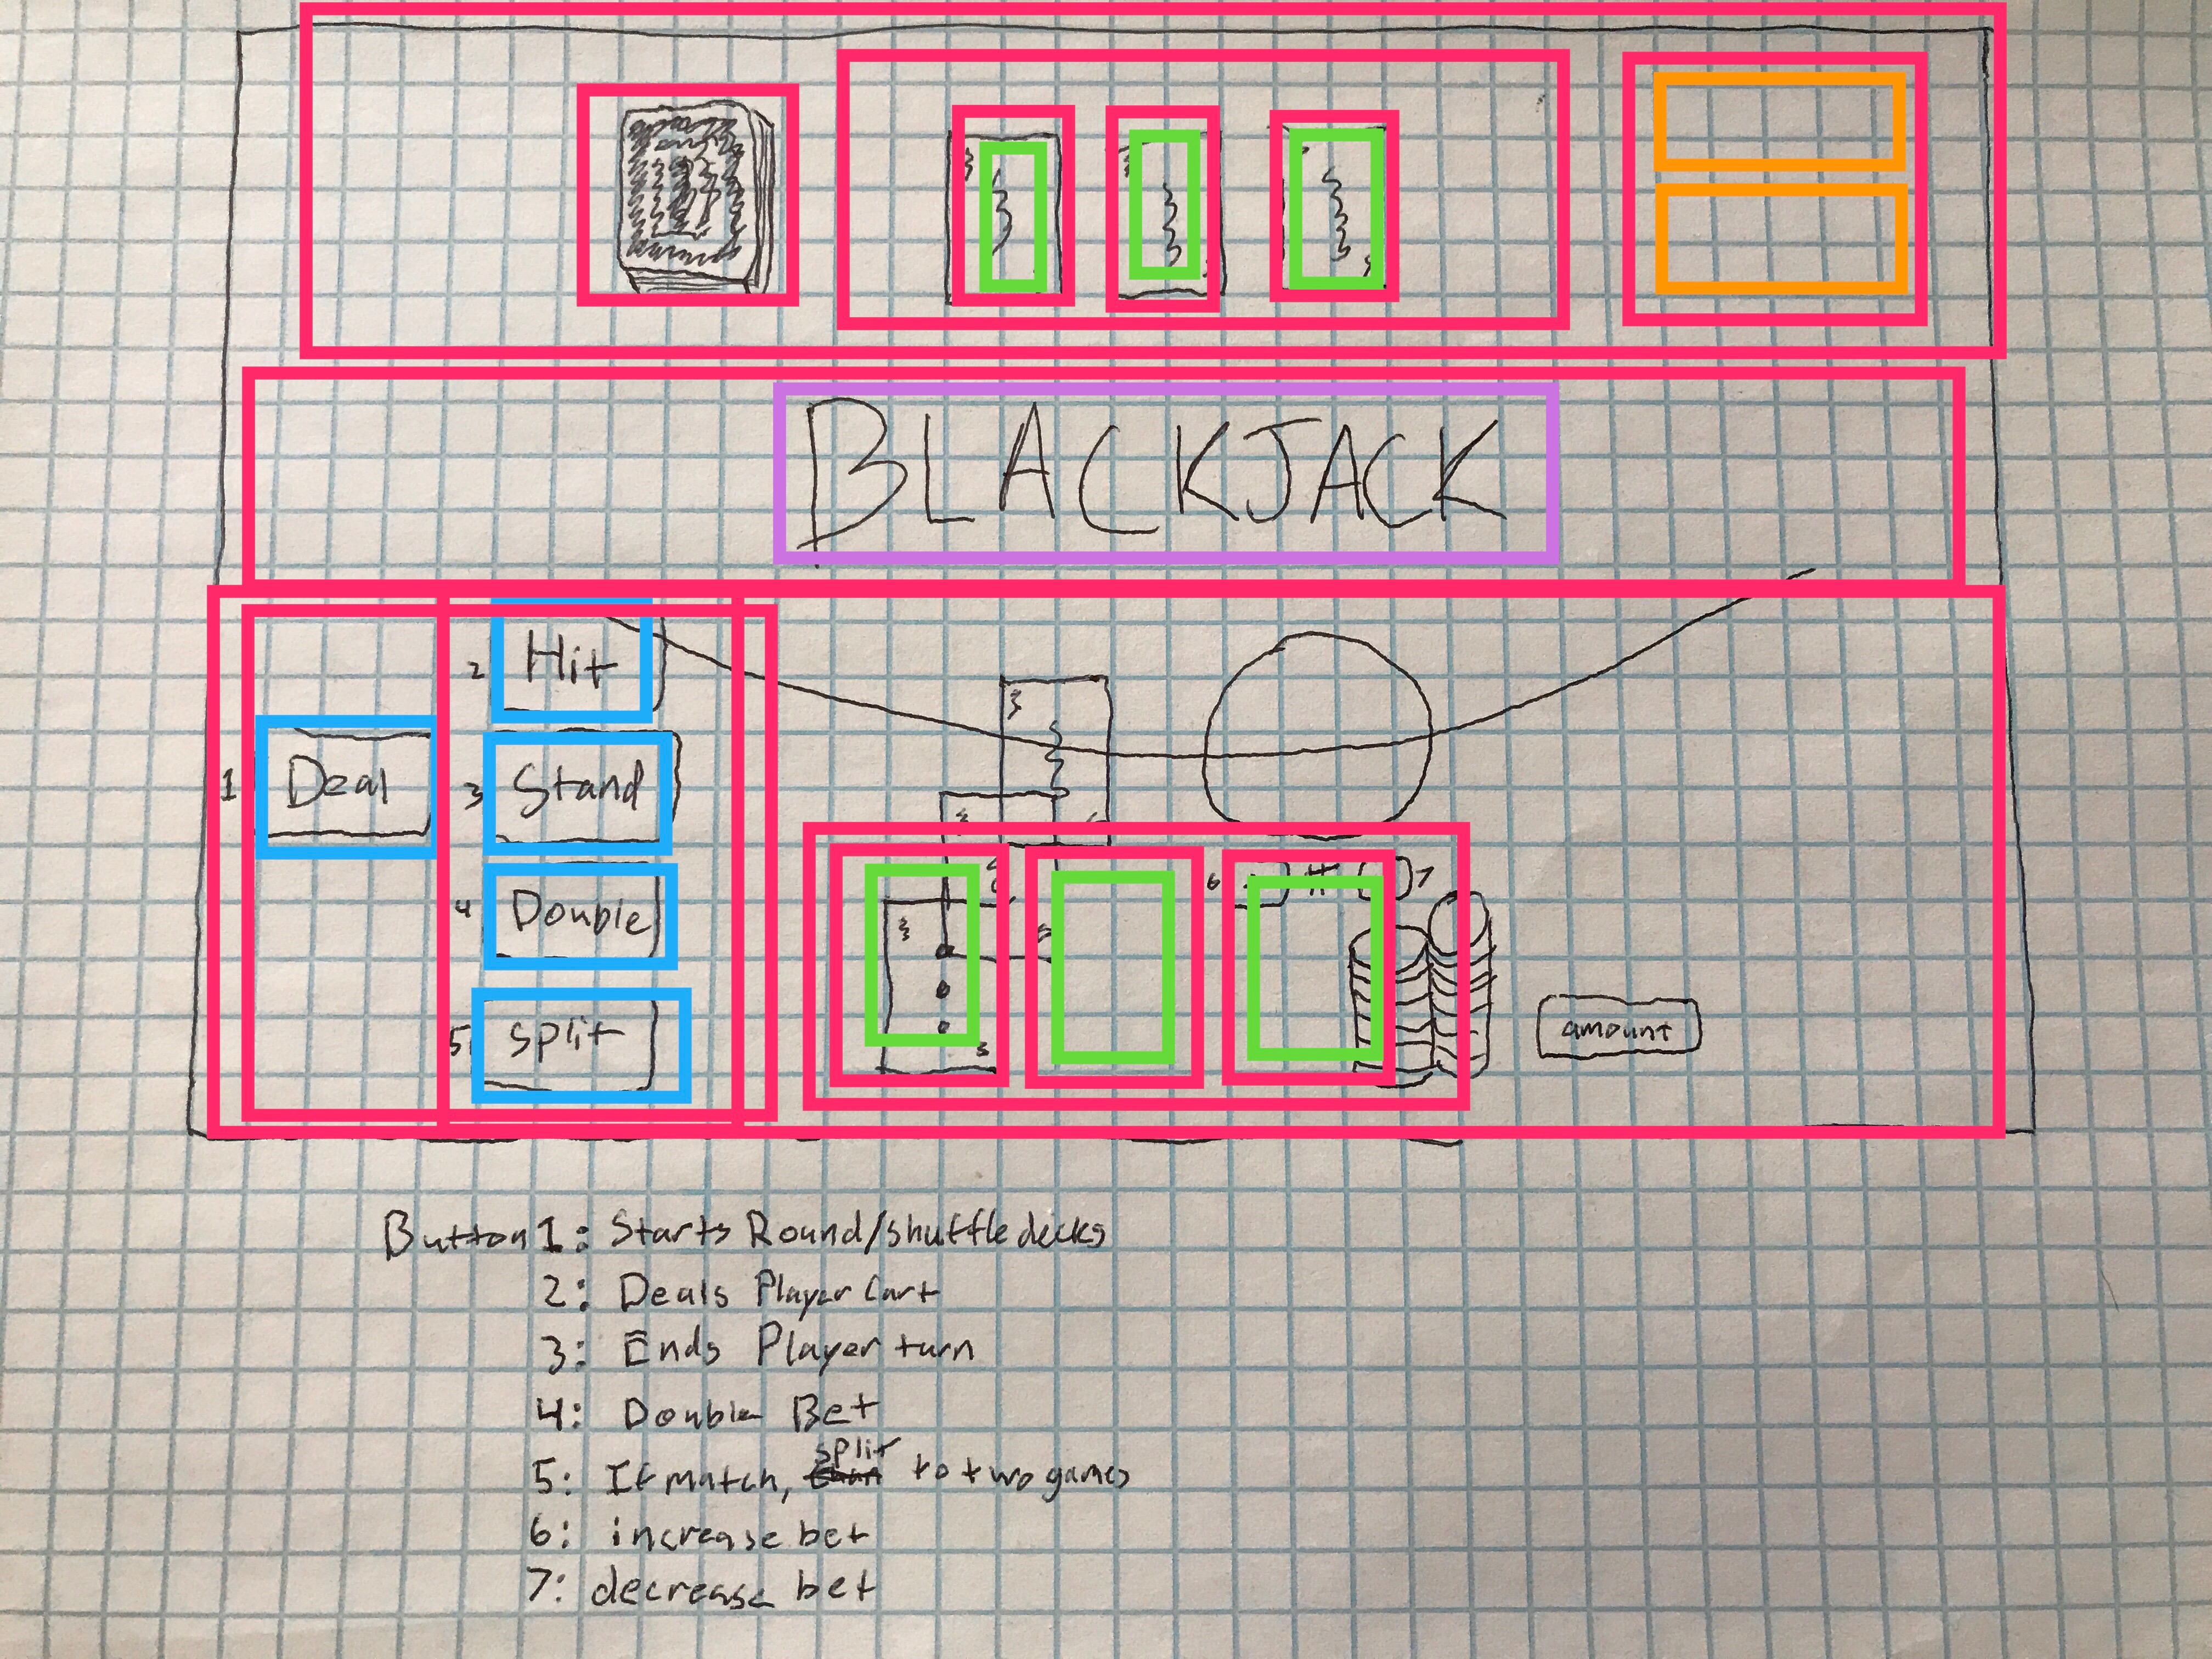 BLACKJACK
2 Hit
1 Deal
3 Stand
4 Double
6 # 7
5 split
amount
Button 1: Starts Round/shuffle decks
2: Deals Player Cart
3: Ends Player turn
4: Double Bet
5: If match, split to two games
6: increase bet
7: decrease bet